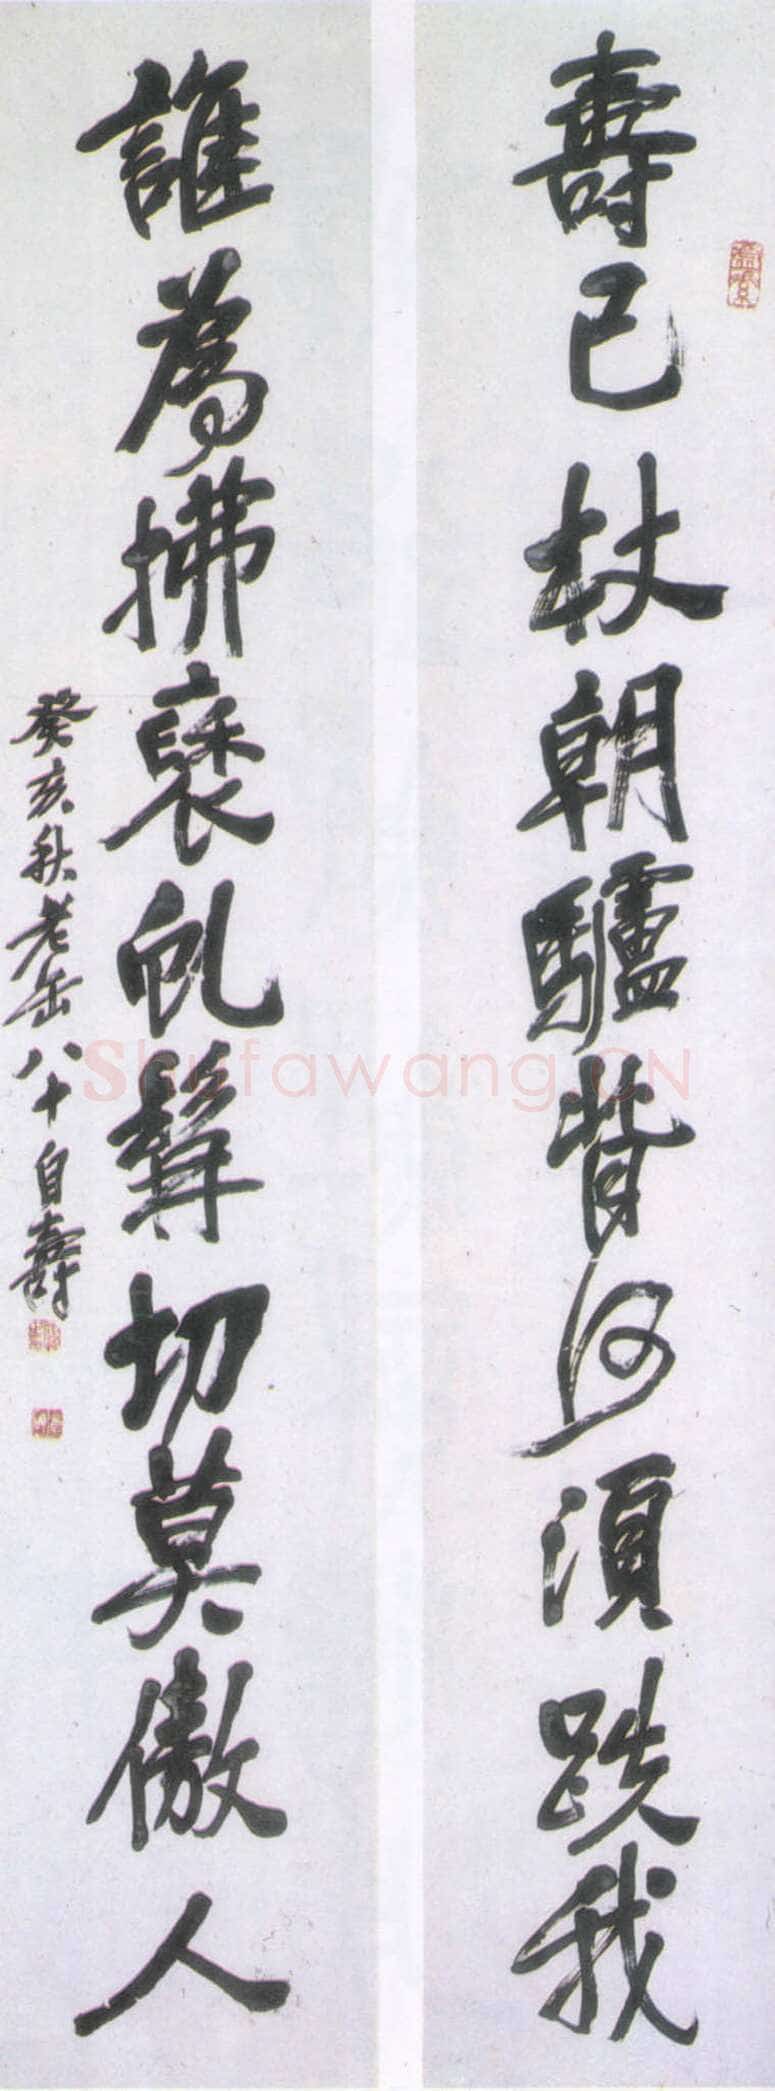 壽已杖朝驢背何須跌我
誰為拂褎虬髯切莫傲人
癸亥秋老缶八十自壽
Shufawang.CN